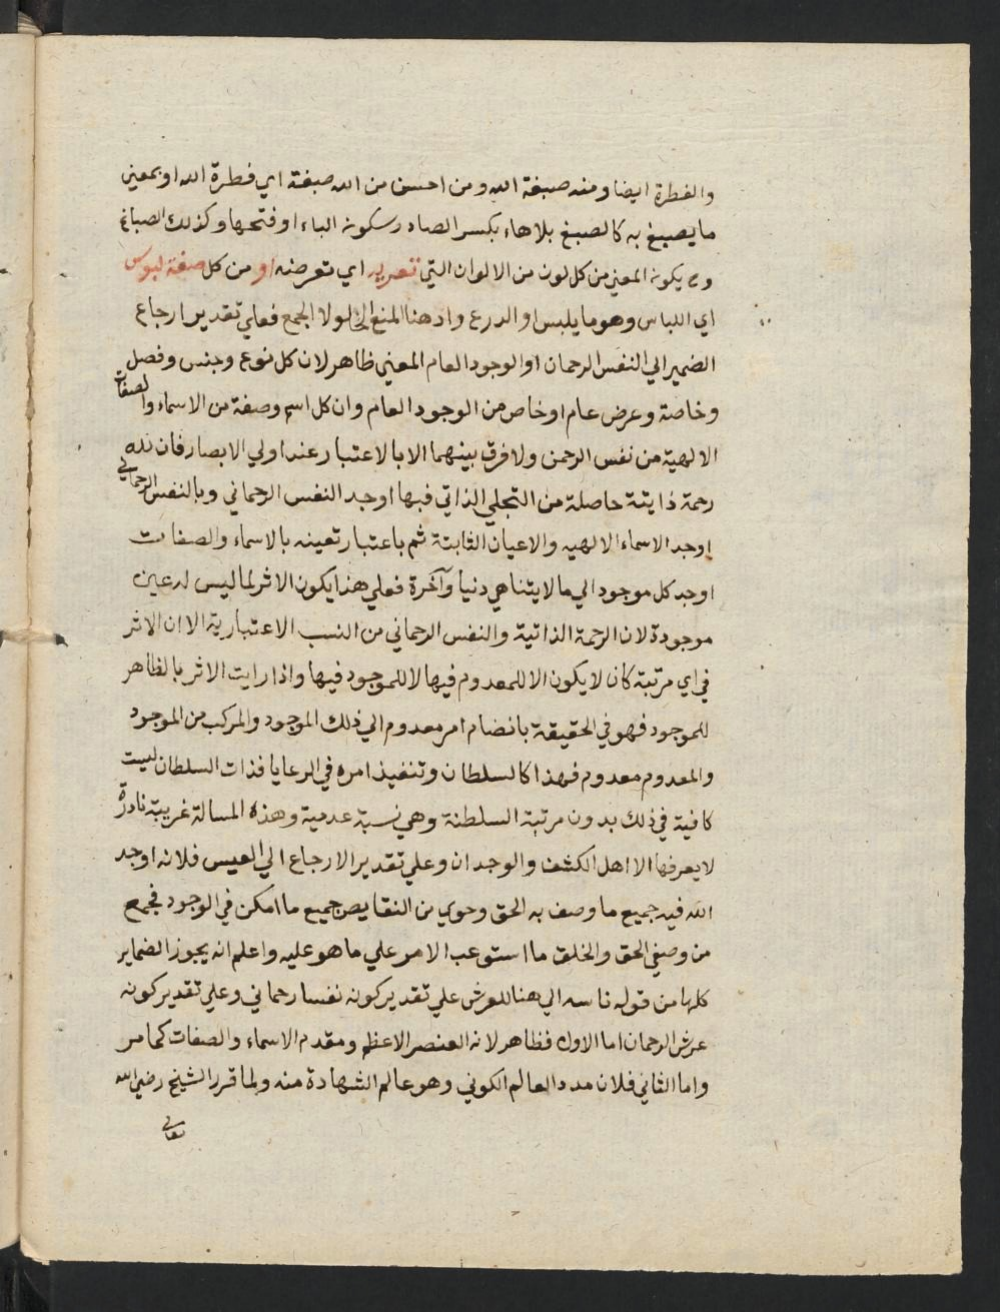 والفطرة ايضا ومنه صبغة الله ومن احسن من الله صبغة اي فطرة الله او بمعني
ما يصبغ به كالصبغ بلاهاء بكسر الصاد وسكون الباء او فتحها وكذلك الصباغ
وح يكون المعني من كل لون من الالوان التي تعريه اي تعرضنه او من كل صفة لبوس
اي اللباس وهو ما يلبس او الدرع واو هنا لمنع الخلو لا الجمع فعلي تقدير ارجاع
الضمير الي النفس الرحمان او الوجود العام المعني ظاهر لان كل نوع وجنس وفصل
وخاصة وعرض عام او خاص من الوجود العام وان كل اسم وصفة من الاسماء والصفات
الالهية من نفس الرحمن ولا فرق بينهما الا بالاعتبار عند اولي الابصار فان لله
رحمة ذاتية حاصلة من التجلي الذاتي فبها اوجد النفس الرحماني وبالنفس الرحماني
اوجد الاسماء الالهيه والاعيان الثابتة ثم باعتبار تعينه بالاسماء والصفات
اوجد كل موجود الي ما لا يتناهي دنيا وآخرة فعلي هذا يكون الاثر لما ليس له عين
موجودة لان الرحمة الذاتية والنفس الرحماني من النسب الاعتبارية الا ان الاثر
في اي مرتبة كان لا يكون الا للمعدوم فيها لا للموجود فيها واذا رايت الاثر بالظاهر
للموجود فهو في الحقيقة بانضمام امر معدوم الي ذلك الموجود والمركب من الموجود
والمعدوم معدوم فهذا كالسلطان وتنفيذ امره في الرعايا فذات السلطان ليست
كافية في ذلك بدون مرتبة السلطنة وهي نسبة عدمية وهذه المسالة غريبة نادرة
لا يعرفها الا اهل الكشف والوجدان وعلي تقدير الارجاع الي العيس فلانه اوجد
الله فيه جميع ما وصف به الحق وحوي من النقايص جميع ما امكن في الوجود فجمع
من وصفي الحق والخلق ما استوعب الامر علي ما هو عليه واعلم انه يجوز الضماير
كلها من قوله ناسه الي هنا للعرش علي تقدير كونه نفسا رحماني وعلي تقدير كونه
عرش الرحمان اما الاول فظاهر لانه العنصر الاعظم ومقدم الاسماء والصفات كما مر
واما الثاني فلان مدد العالم الكوني وهو عالم الشهادة منه ولما قرر الشيخ رضي الله
تعالي